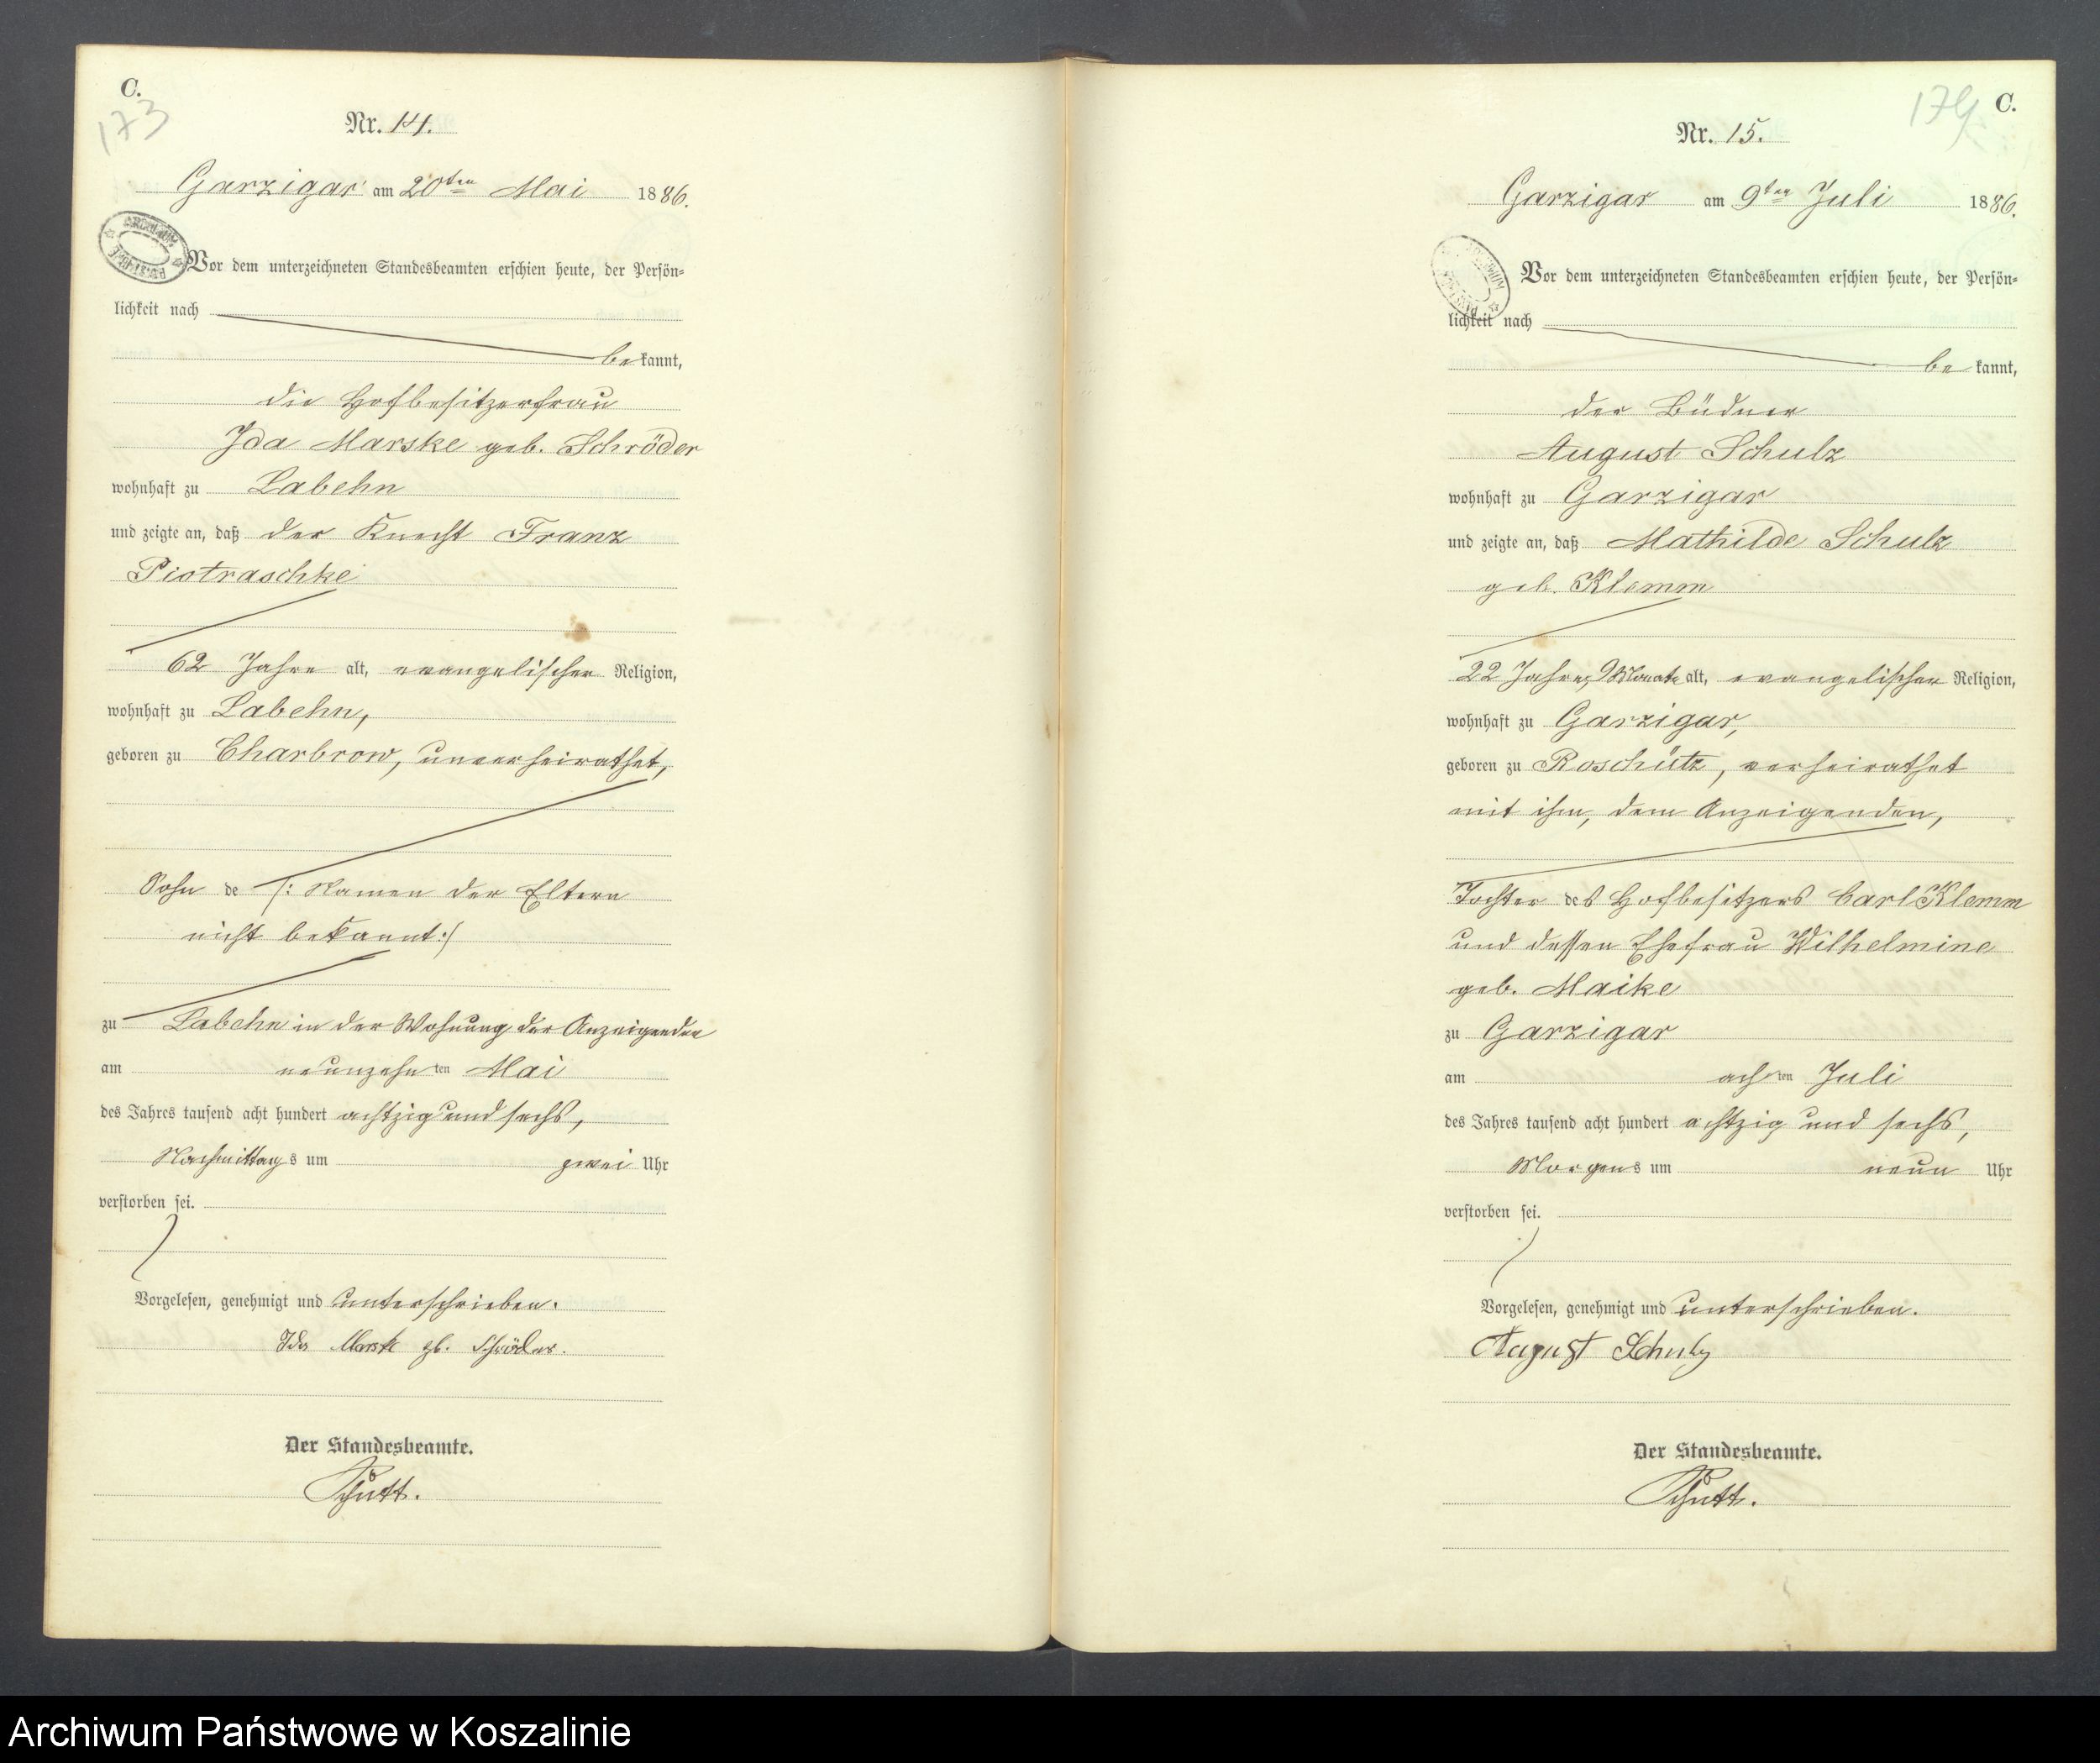 C.
173
Nr. 14.
Garzigar am 20ten Mai 1886.
Vor dem unterzeichneten Standesbeamten erschien heute, der Persön-
lichkeit nach
bekannt,
die Hofbesitzerfrau
Ida Marske geb. Schröder
wohnhaft zu Labehn
und zeigte an, daß der Knecht Franz
Piotraschke
62 Jahre alt, evangelischer Religion,
wohnhaft zu Labehn,
geboren zu Charbrow, unverheirathet,
Sohn de /: Namen der Eltern
nicht bekannt :/
zu Labehn in der Wohnung der Anzeigenden
am neunzehnten Mai
des Jahres tausend acht hundert achtzig und sechs,
Nachmittags um zwei Uhr
verstorben sei.
Vorgelesen, genehmigt und unterschrieben.
Ida Marske gb. Schröder.
Der Standesbeamte.
Schütt.
174
C.
Nr. 15.
Garzigar am 9ten Juli 1886.
Vor dem unterzeichneten Standesbeamten erschien heute, der Persön-
lichkeit nach
bekannt,
der Büdner
August Schulz
wohnhaft zu Garzigar
und zeigte an, daß Mathilde Schulz
geb. Klemm
22 Jahre, 9 Monate alt, evangelischer Religion,
wohnhaft zu Garzigar,
geboren zu Roschütz, verheirathet
mit ihm, dem Anzeigenden,
Tochter des Hofbesitzers Carl Klemm
und dessen Ehefrau Wilhelmine
geb. Maike
zu Garzigar
am achten Juli
des Jahres tausend acht hundert achtzig und sechs,
Morgens um neun Uhr
verstorben sei.
Vorgelesen, genehmigt und unterschrieben.
August Schulz
Der Standesbeamte.
Schütt.
Archiwum Państwowe w Koszalinie